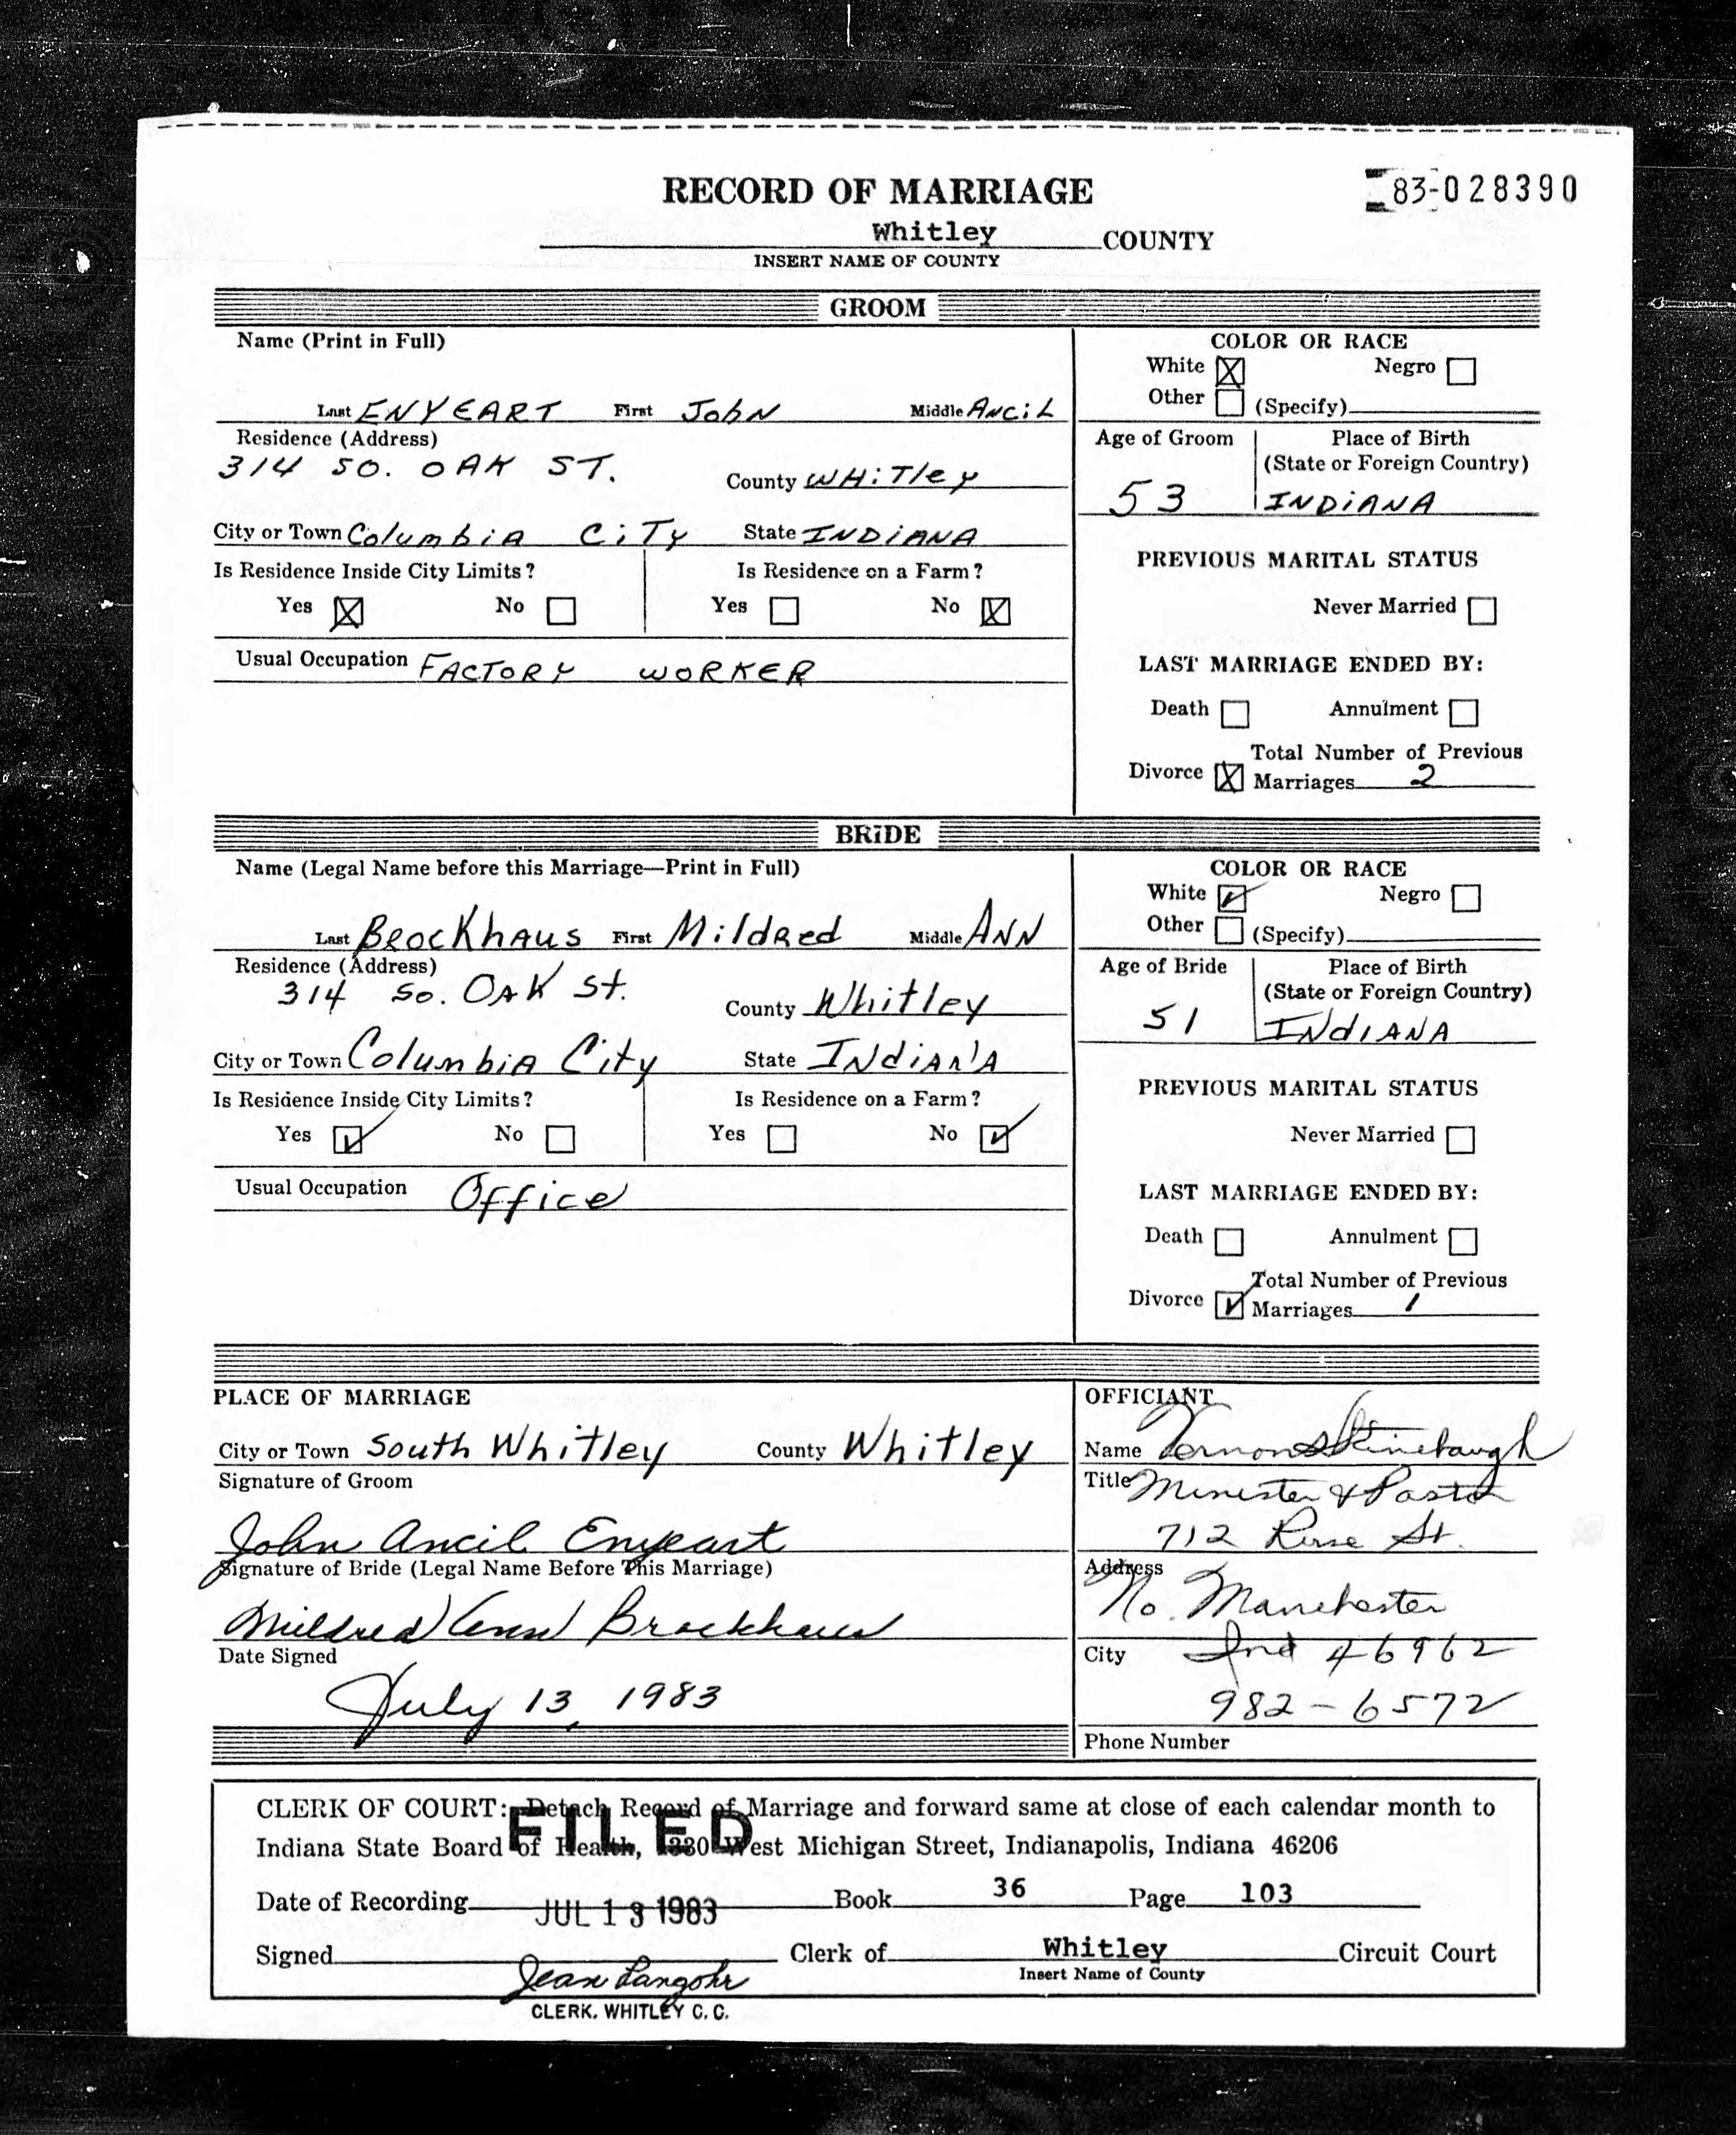 RECORD OF MARRIAGE
83-028390
Whitley COUNTY
INSERT NAME OF COUNTY
GROOM
Name (Print in Full)
Last ENYEART First John Middle Ancil
Residence (Address)
314 SO. OAK ST. County WHiTley
City or Town Columbia CiTy State INDiANA
Is Residence Inside City Limits? Is Residence on a Farm?
Yes ☒ No ☐ Yes ☐ No ☒
Usual Occupation FACTORY WORKER
COLOR OR RACE
White ☒ Negro ☐
Other ☐ (Specify)
Age of Groom Place of Birth
(State or Foreign Country)
53 INDiANA
PREVIOUS MARITAL STATUS
Never Married ☐
LAST MARRIAGE ENDED BY:
Death ☐ Annulment ☐
Total Number of Previous
Divorce ☒ Marriages 2
BRIDE
Name (Legal Name before this Marriage—Print in Full)
Last Brockhaus First Mildred Middle ANN
Residence (Address)
314 So. OAK St. County Whitley
City or Town Columbia City State Indiana
Is Residence Inside City Limits? Is Residence on a Farm?
Yes ☑ No ☐ Yes ☐ No ☑
Usual Occupation Office
COLOR OR RACE
White ☑ Negro ☐
Other ☐ (Specify)
Age of Bride Place of Birth
(State or Foreign Country)
51 INdIANA
PREVIOUS MARITAL STATUS
Never Married ☐
LAST MARRIAGE ENDED BY:
Death ☐ Annulment ☐
Total Number of Previous
Divorce ☑ Marriages 1
PLACE OF MARRIAGE
City or Town South Whitley County Whitley
Signature of Groom
John Ancil Enyeart
Signature of Bride (Legal Name Before This Marriage)
Mildred Ann Brockhaus
Date Signed
July 13, 1983
OFFICIANT
Name Vernon Stinebaugh
Title Minister & Pastor
712 St.
Address
No. Manchester
City Ind 46962
982-6572
Phone Number
CLERK OF COURT: Detach Record of Marriage and forward same at close of each calendar month to
Indiana State Board of Health, 1330 West Michigan Street, Indianapolis, Indiana 46206
FILED
Date of Recording JUL 13 1983 Book 36 Page 103
Signed Jean Langohr Clerk of Whitley Circuit Court
Insert Name of County
CLERK, WHITLEY C. C.